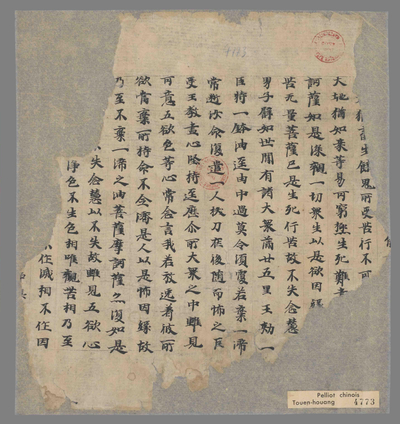 畜生餓鬼所受苦行不可
大地猶如棗等易可窮極生死難盡
訶薩如是深觀一切衆生以是欲因緣
苦无量菩薩已是生死行苦故不失念慧
男子辟如世間有諸大衆滿廿五里王勑一
臣持一鉢油逕由中過莫令傾覆若棄一渧
當断汝命復遣一人拔刀在後隨而怖之臣
受王教盡心堅持逕歷尒所大衆之中雖見
可意五欲色等心常念言我若放逸著彼所
欲當棄所持命不全濟是人以是怖因緣故
乃至不棄一渧之油菩薩摩訶薩亦復如是
不失念慧以不失故雖見五欲心
淨色不生色相唯觀苦相乃至
不作滅相不作因
4773
Pelliot chinois
Touen-houang 4773